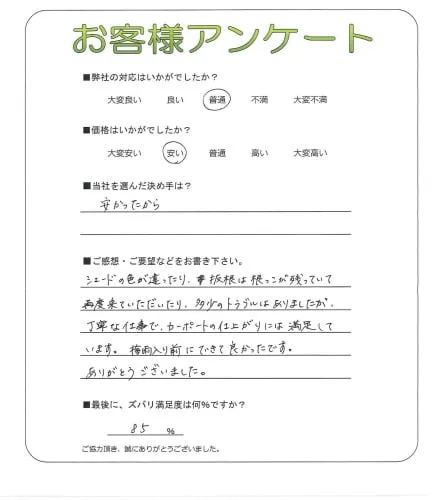 お客様アンケート
■弊社の対応はいかがでしたか？
大変良い 良い 普通 不満 大変不満
■価格はいかがでしたか？
大変安い 安い 普通 高い 大変高い
■当社を選んだ決め手は？
安かったから
■ご感想・ご要望などをお書き下さい。
シェードの色が違ったり、板根は根っこが残っていて
再度来ていただいたり、多少のトラブルはありましたが、
丁寧な仕事で、カーポートの仕上がりには満足して
います。梅雨入り前にできて良かったです。
ありがとうございました。
■最後に、ズバリ満足度は何％ですか？
85 %
ご協力頂き、誠にありがとうございました。